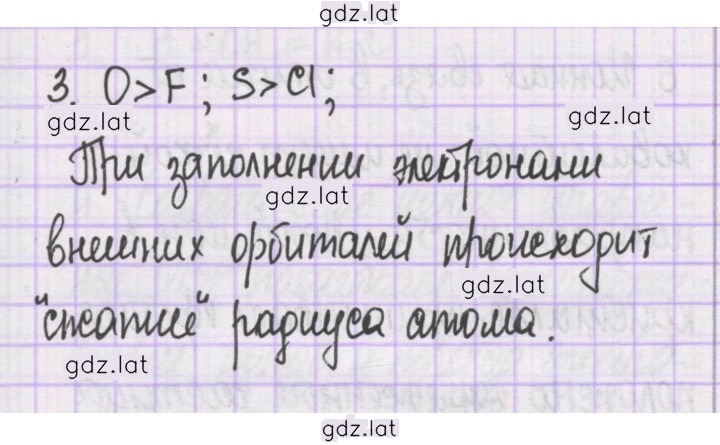 gdz.lat
3. O>F; S>Cl;
gdz.lat gdz.lat
При заполнении электронами
gdz.lat
внешних орбиталей происходит
gdz.lat
"сжатие" радиуса атома.
gdz.lat
gdz.lat